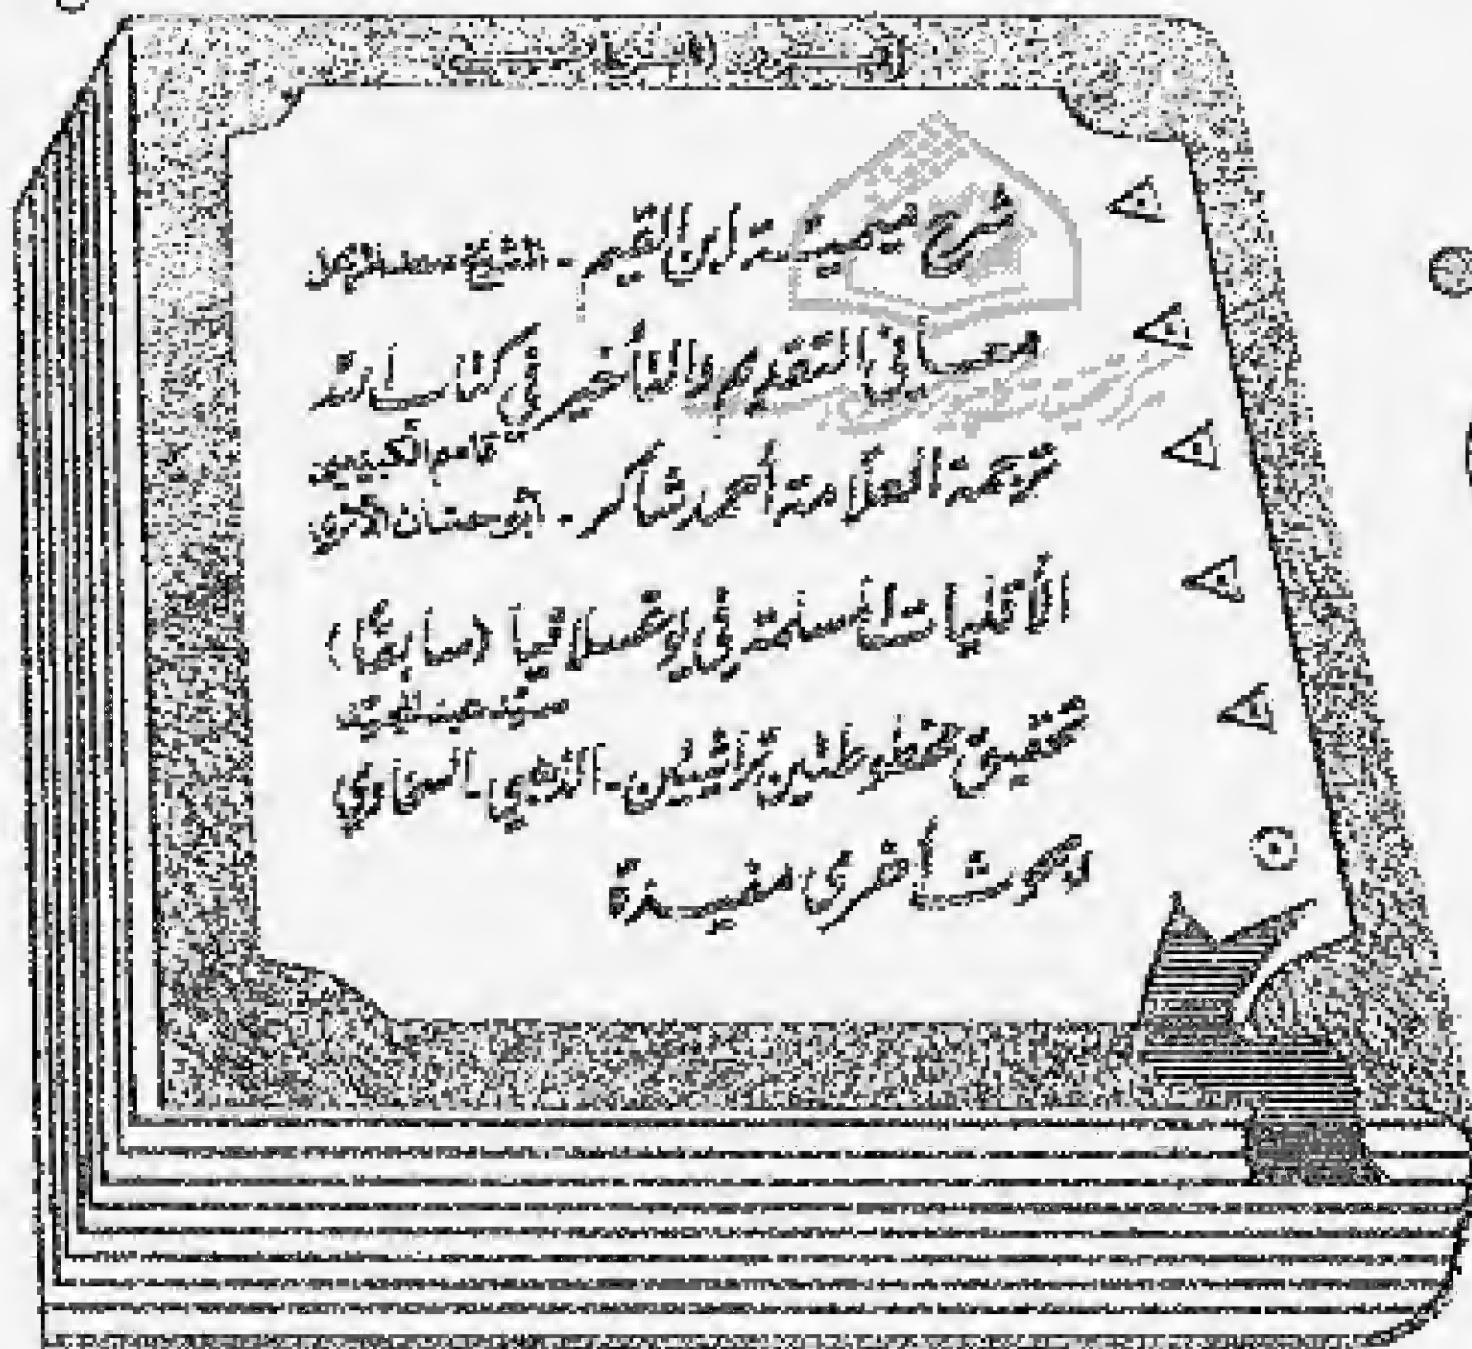 شرح ميمية ابن القيم - الشيخ
معاني التقديم والتأخير في كتاب الله
قاسم
ترجمة العلامة أحمد شاكر - أبو حسان الأثري
الأقليات المسلمة في يوغسلافيا (سابقًا)
تحقيق مخطوطتين تراثيتين - الذهبي - السخاوي
وبحوث أخرى مفيدة